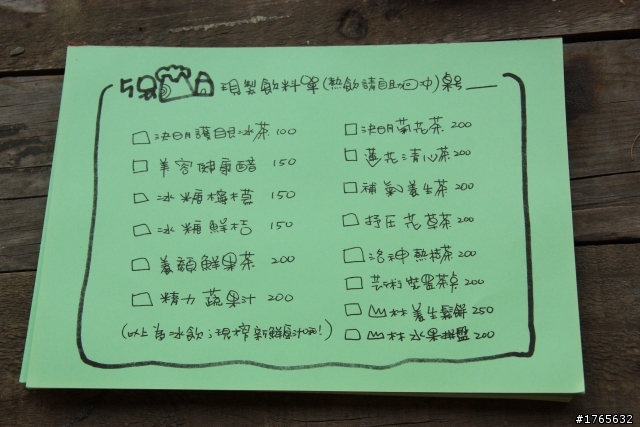 5號 現製飲料單(熱飲請自助回沖)桌號
決明護目冰茶 100
美容健康醋 150
冰糖檸檬 150
冰糖鮮桔 150
養顏鮮果茶 200
精力蔬果汁 200
(以上為冰飲;現榨新鮮果汁唷!)
決明菊花茶 200
蓮花清心茶 200
補氣養生茶 200
抒压花草茶 200
洛神熱桔茶 200
芸術裝置茶桌 200
山林養生鬆餅 250
山林水果拼盤 200
#1765632